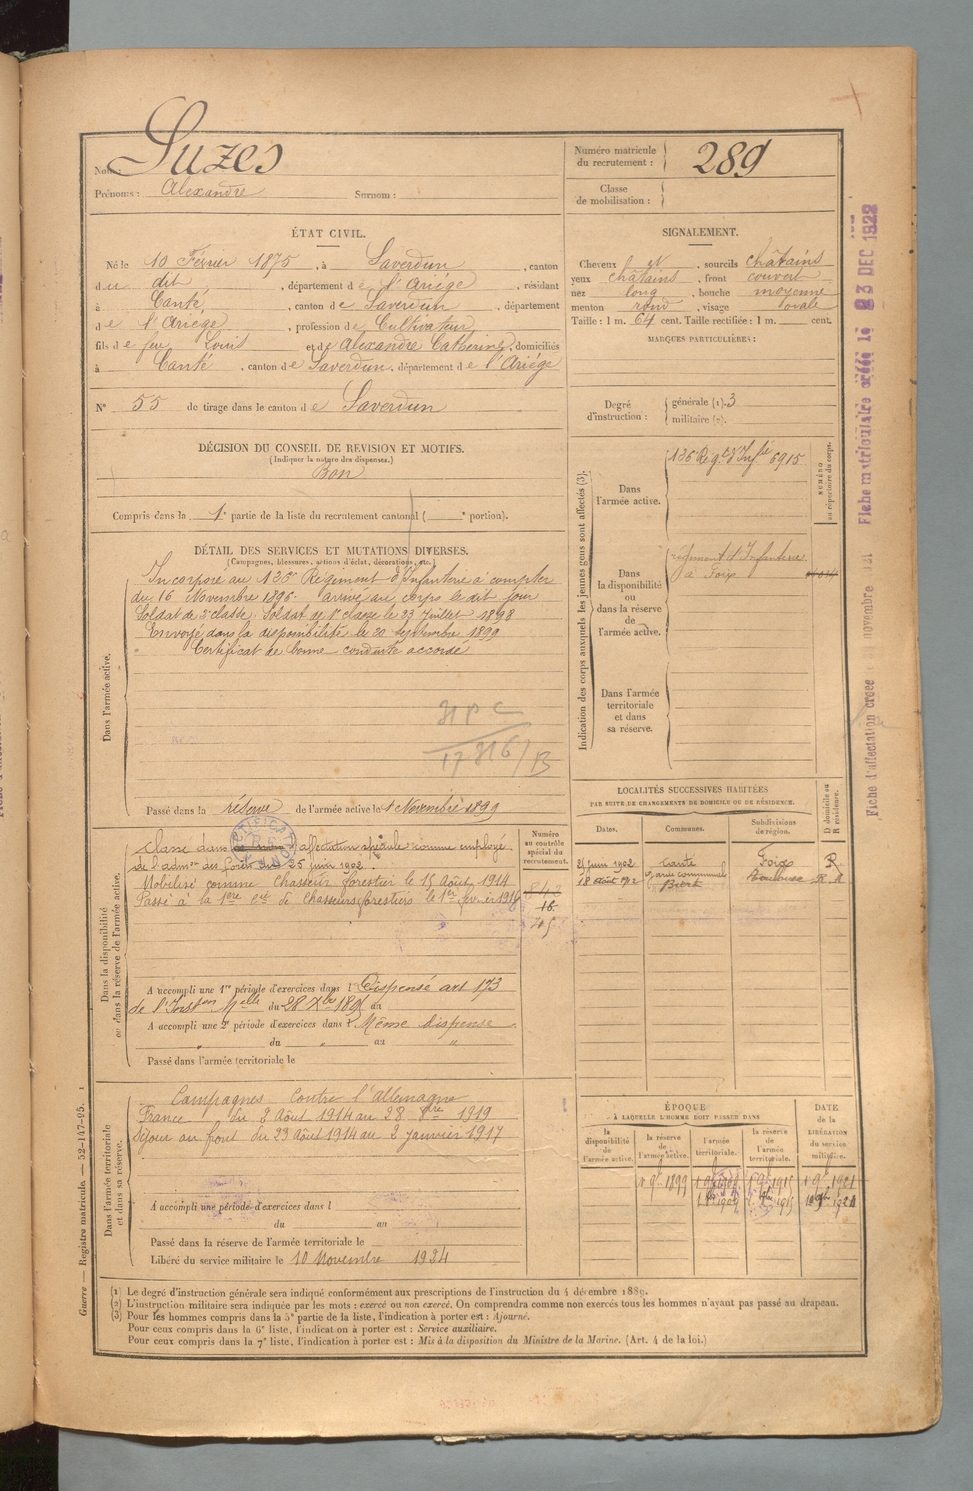 Nom : Suzes
Prénoms : Alexandre Surnom :
Numéro matricule du recrutement : 289
Classe de mobilisation :
ÉTAT CIVIL.
Né le 10 Février 1875, à Saverdun, canton
du dit, département de l'Ariège, résidant
à Canté, canton de Saverdun, département
de l'Ariège, profession de Cultivateur
fils de feu Louis et de Alexandre Catherine, domiciliés
à Canté, canton de Saverdun, département de l'Ariège
N° 55 de tirage dans le canton de Saverdun
SIGNALEMENT.
Cheveux et, sourcils châtains
yeux châtains, front couvert
nez long, bouche moyenne
menton rond, visage ovale
Taille : 1 m. 64 cent. Taille rectifiée : 1 m. cent.
MARQUES PARTICULIÈRES :
Degré d'instruction : générale (1). 3
militaire (2).
DÉCISION DU CONSEIL DE REVISION ET MOTIFS.
(Indiquer la nature des dispenses.)
Bon
Compris dans la 1e partie de la liste du recrutement cantonal ( e portion).
DÉTAIL DES SERVICES ET MUTATIONS DIVERSES.
(Campagnes, blessures, actions d'éclat, décorations, etc.)
Dans l'armée active.
Incorporé au 126e Régiment d'Infanterie à compter
du 16 Novembre 1896. Arrivé au corps le dit jour
Soldat de 2e classe. Soldat de 1e classe le 23 Juillet 1898
Envoyé dans la disponibilité le 20 Septembre 1899
Certificat de bonne conduite accordé
17816/B
Passé dans la réserve de l'armée active le 1 Novembre 1899
Indication des corps auxquels les jeunes gens sont affectés (3).
NUMÉRO au répertoire du corps.
Dans l'armée active.
126 Régt d'Infie 6915
Dans la disponibilité ou dans la réserve de l'armée active.
régiment d'Infanterie
à Foix
Dans l'armée territoriale et dans sa réserve.
LOCALITÉS SUCCESSIVES HABITÉES
PAR SUITE DE CHANGEMENTS DE DOMICILE OU DE RÉSIDENCE.
Dates. Communes. Subdivisions de région. D domicile ou R résidence.
25 Juin 1902 Canté Foix R
garde communal
18 Août 1912 Biert Toulouse R
Dans la disponibilité ou dans la réserve de l'armée active.
Numéro au contrôle spécial du recrutement.
Classé dans affectation spéciale comme employé
de l'admon des forêts du 25 juin 1902
Mobilisé comme Chasseur forestier le 15 Août 1914
Passé à la 1ère cie de Chasseurs forestiers le 1er février 1916
843
16
A accompli une 1re période d'exercices dans l Dispensé art 173
de l'Inston Melle du 28 Xbre 1895 au
A accompli une 2e période d'exercices dans l Même dispense
du " au "
Passé dans l'armée territoriale le
Dans l'armée territoriale et dans sa réserve.
Campagnes Contre l'Allemagne
France du 2 Août 1914 au 28 1919
Séjour au front du 23 Août 1914 au 2 janvier 1917
A accompli une période d'exercices dans l
du au
Passé dans la réserve de l'armée territoriale le
Libéré du service militaire le 10 Novembre 1924
ÉPOQUE
À LAQUELLE L'HOMME DOIT PASSER DANS
la disponibilité de l'armée active. la réserve de l'armée active. l'armée territoriale. la réserve de l'armée territoriale. DATE de la LIBÉRATION du service militaire.
1 9bre 1899 1 9bre 1909 1 9bre 1915 1 9bre 1921
1909 1915 10 9bre 1924
(1) Le degré d'instruction générale sera indiqué conformément aux prescriptions de l'instruction du 4 décembre 1889.
(2) L'instruction militaire sera indiquée par les mots : exercé ou non exercé. On comprendra comme non exercés tous les hommes n'ayant pas passé au drapeau.
(3) Pour les hommes compris dans la 5e partie de la liste, l'indication à porter est : Ajourné.
Pour ceux compris dans la 6e liste, l'indication à porter est : Service auxiliaire.
Pour ceux compris dans la 7e liste, l'indication à porter est : Mis à la disposition du Ministre de la Marine. (Art. 4 de la loi.)
Guerre — Registre matricule. — 52-147-95.
Fiche matriculaire créée le 23 DEC 1922
Fiche d'affectation créée novembre